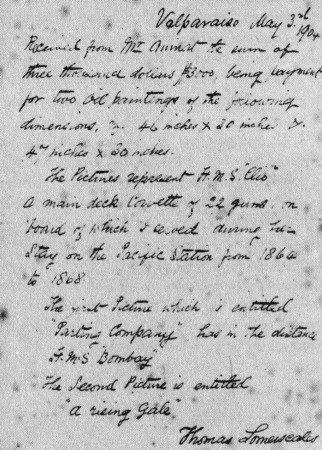 Valparaiso May 3rd 1904
Received from Mr the sum of
three thousand dollars $3000, being payment
for two oil paintings of the following
dimensions, 46 inches x 30 inches &
47 inches x 30 inches.
The Pictures represent H.M.S "Clio"
A main deck Corvette of 22 guns, on
board of which I served during her
Stay on the Pacific Station from 1864
to 1868
The first Picture which is entitled
"Parting Company" has in the distance
H.M.S "Bombay"
The Second Picture is entitled
"A rising Gale"
Thomas Somerscales